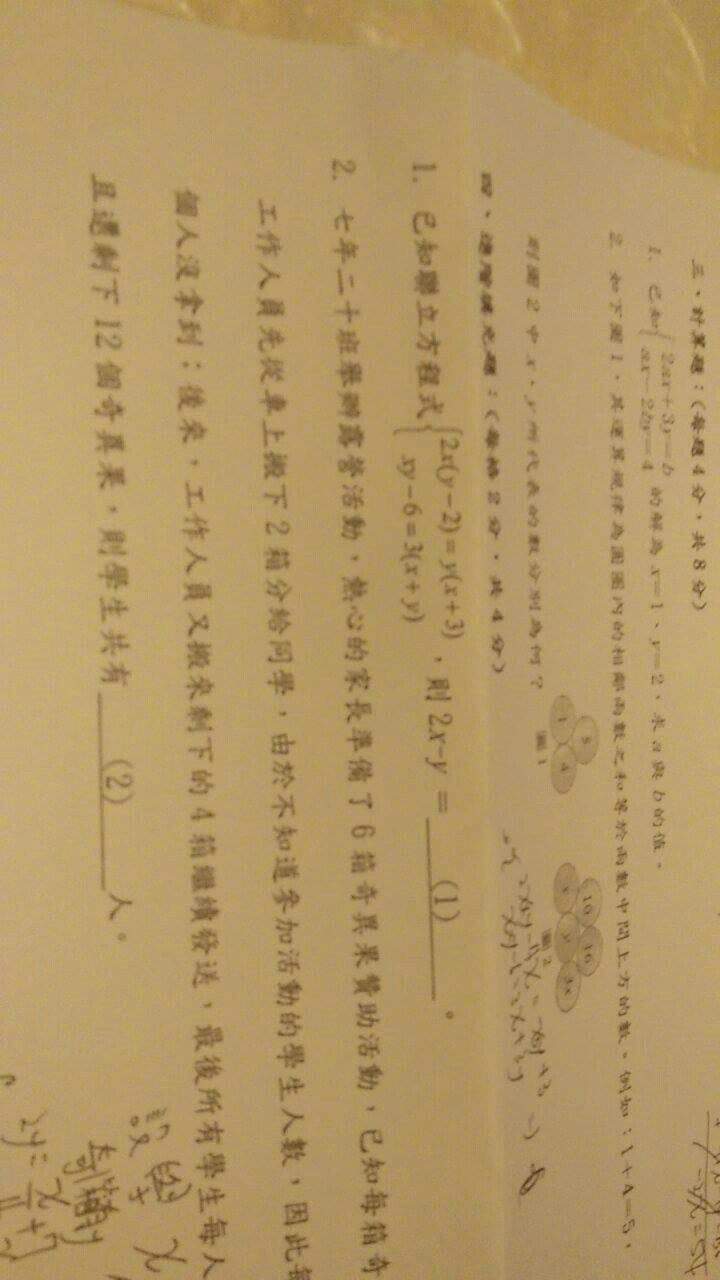 三、計算題：(每題4分，共8分)
1. 已知{2ax+3y=b
ax-2by=4 的解為 x=1、y=2，求 a 與 b 的值。
2. 如下圖1，其運算規律為圓圈內的相鄰兩數之和等於兩數中間上方的數。例如：1+4=5，
則圖2中 x、y 所代表的數分別為何？
5
1 4
圖1
10 16
x y
圖2
四、進階填充題：(每格2分，共4分)
1. 已知聯立方程式{2x(y-2)=y(x+3)
xy-6=3(x+y) ，則 2x-y = (1) 。
2. 七年二十班舉辦露營活動，熱心的家長準備了6箱奇異果贊助活動，已知每箱奇
工作人員先從車上搬下2箱分給同學，由於不知道參加活動的學生人數，因此每
個人沒拿到；後來，工作人員又搬來剩下的4箱繼續發送，最後所有學生每人
且還剩下12個奇異果，則學生共有 (2) 人。
設學 x